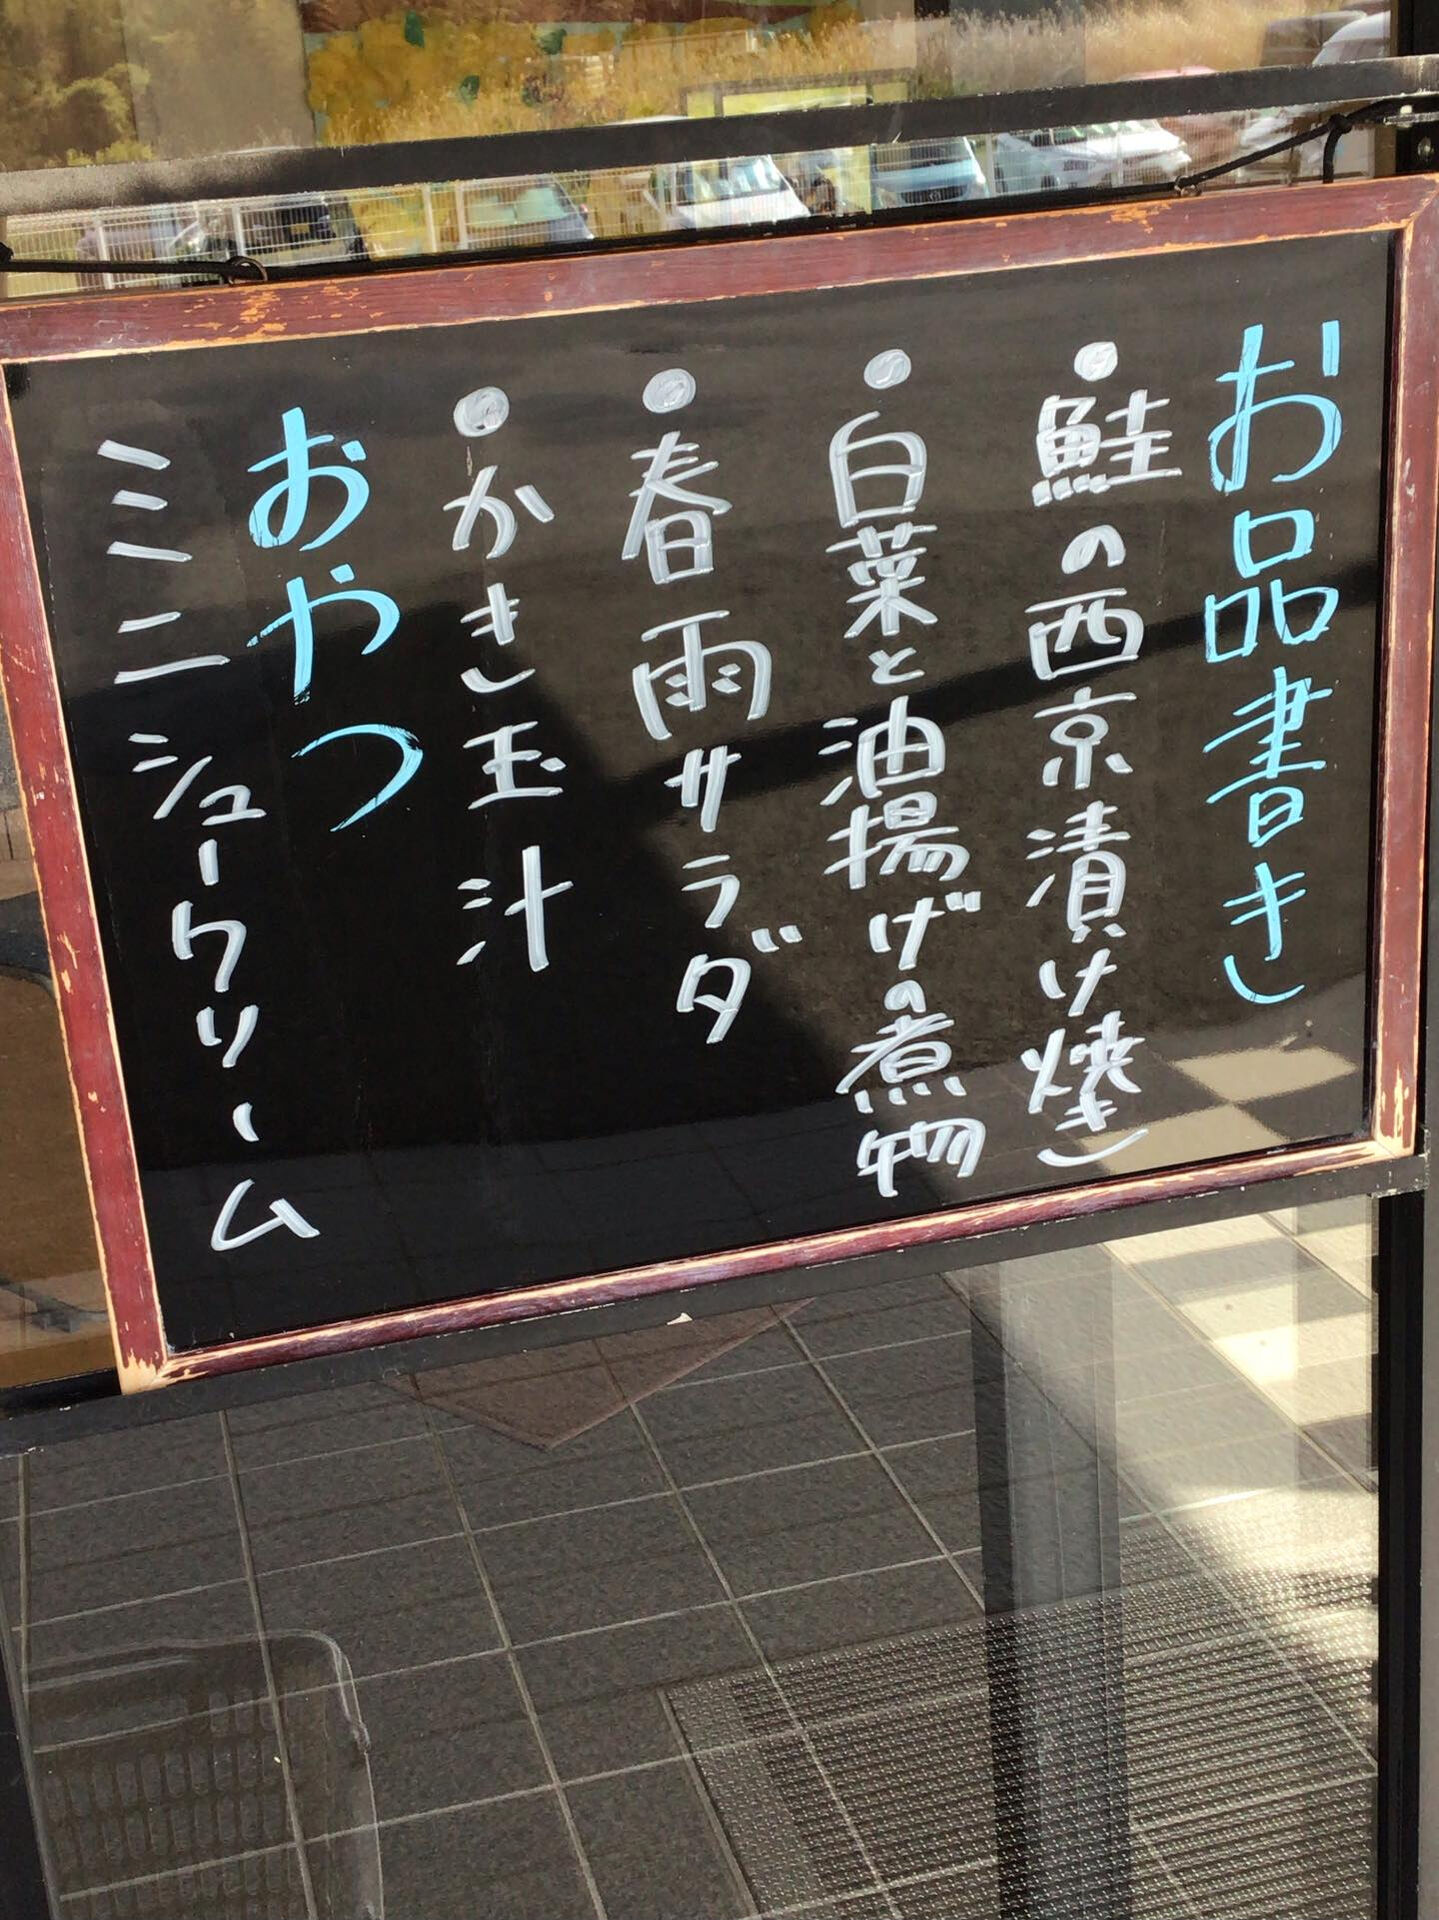 お品書き
●鮭の西京漬け焼き
●白菜と油揚げの煮物
●春雨サラダ
●かき玉汁
おやつ
ミニシュークリーム